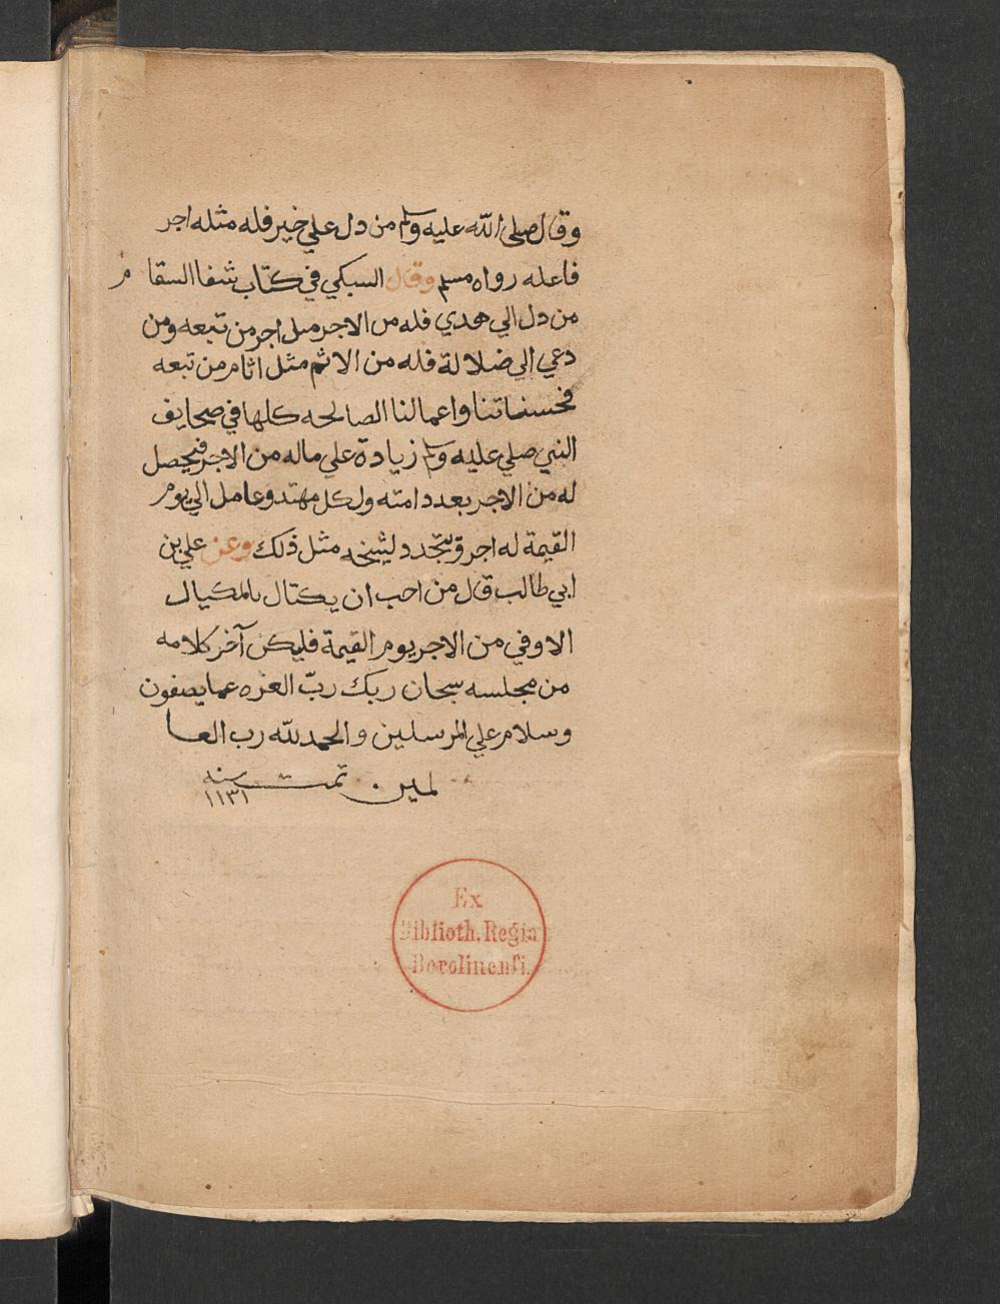 وقال صلى الله عليه وسلم من دل علي خير فله مثله اجر
فاعله رواه مسلم وقال السبكي في كتاب شفا السقام
من دل الي هدي فله من الاجر مثل اجر من تبعه ومن
دعي الي ضلالة فله من الاثم مثل اثام من تبعه
فحسناتنا واعمالنا الصالحه كلها في صحايف
النبي صلي عليه وسلم زيادة علي ماله من الاجر فيحصل
له من الاجر بعدد امته ولكل مهتد وعامل الي يوم
القيمة له اجر ويتجدد لشيخه مثل ذلك وعن علي بن
ابي طالب قال من احب ان يكتال بالمكيال
الاوفي من الاجر يوم القيمة فليكن آخر كلامه
من مجلسه سبحان ربك ربّ العزه عما يصفون
وسلام علي المرسلين والحمد لله رب العا
لمين تمت سنه
١١٣١
Ex
Biblioth. Regia
Berolinensi.